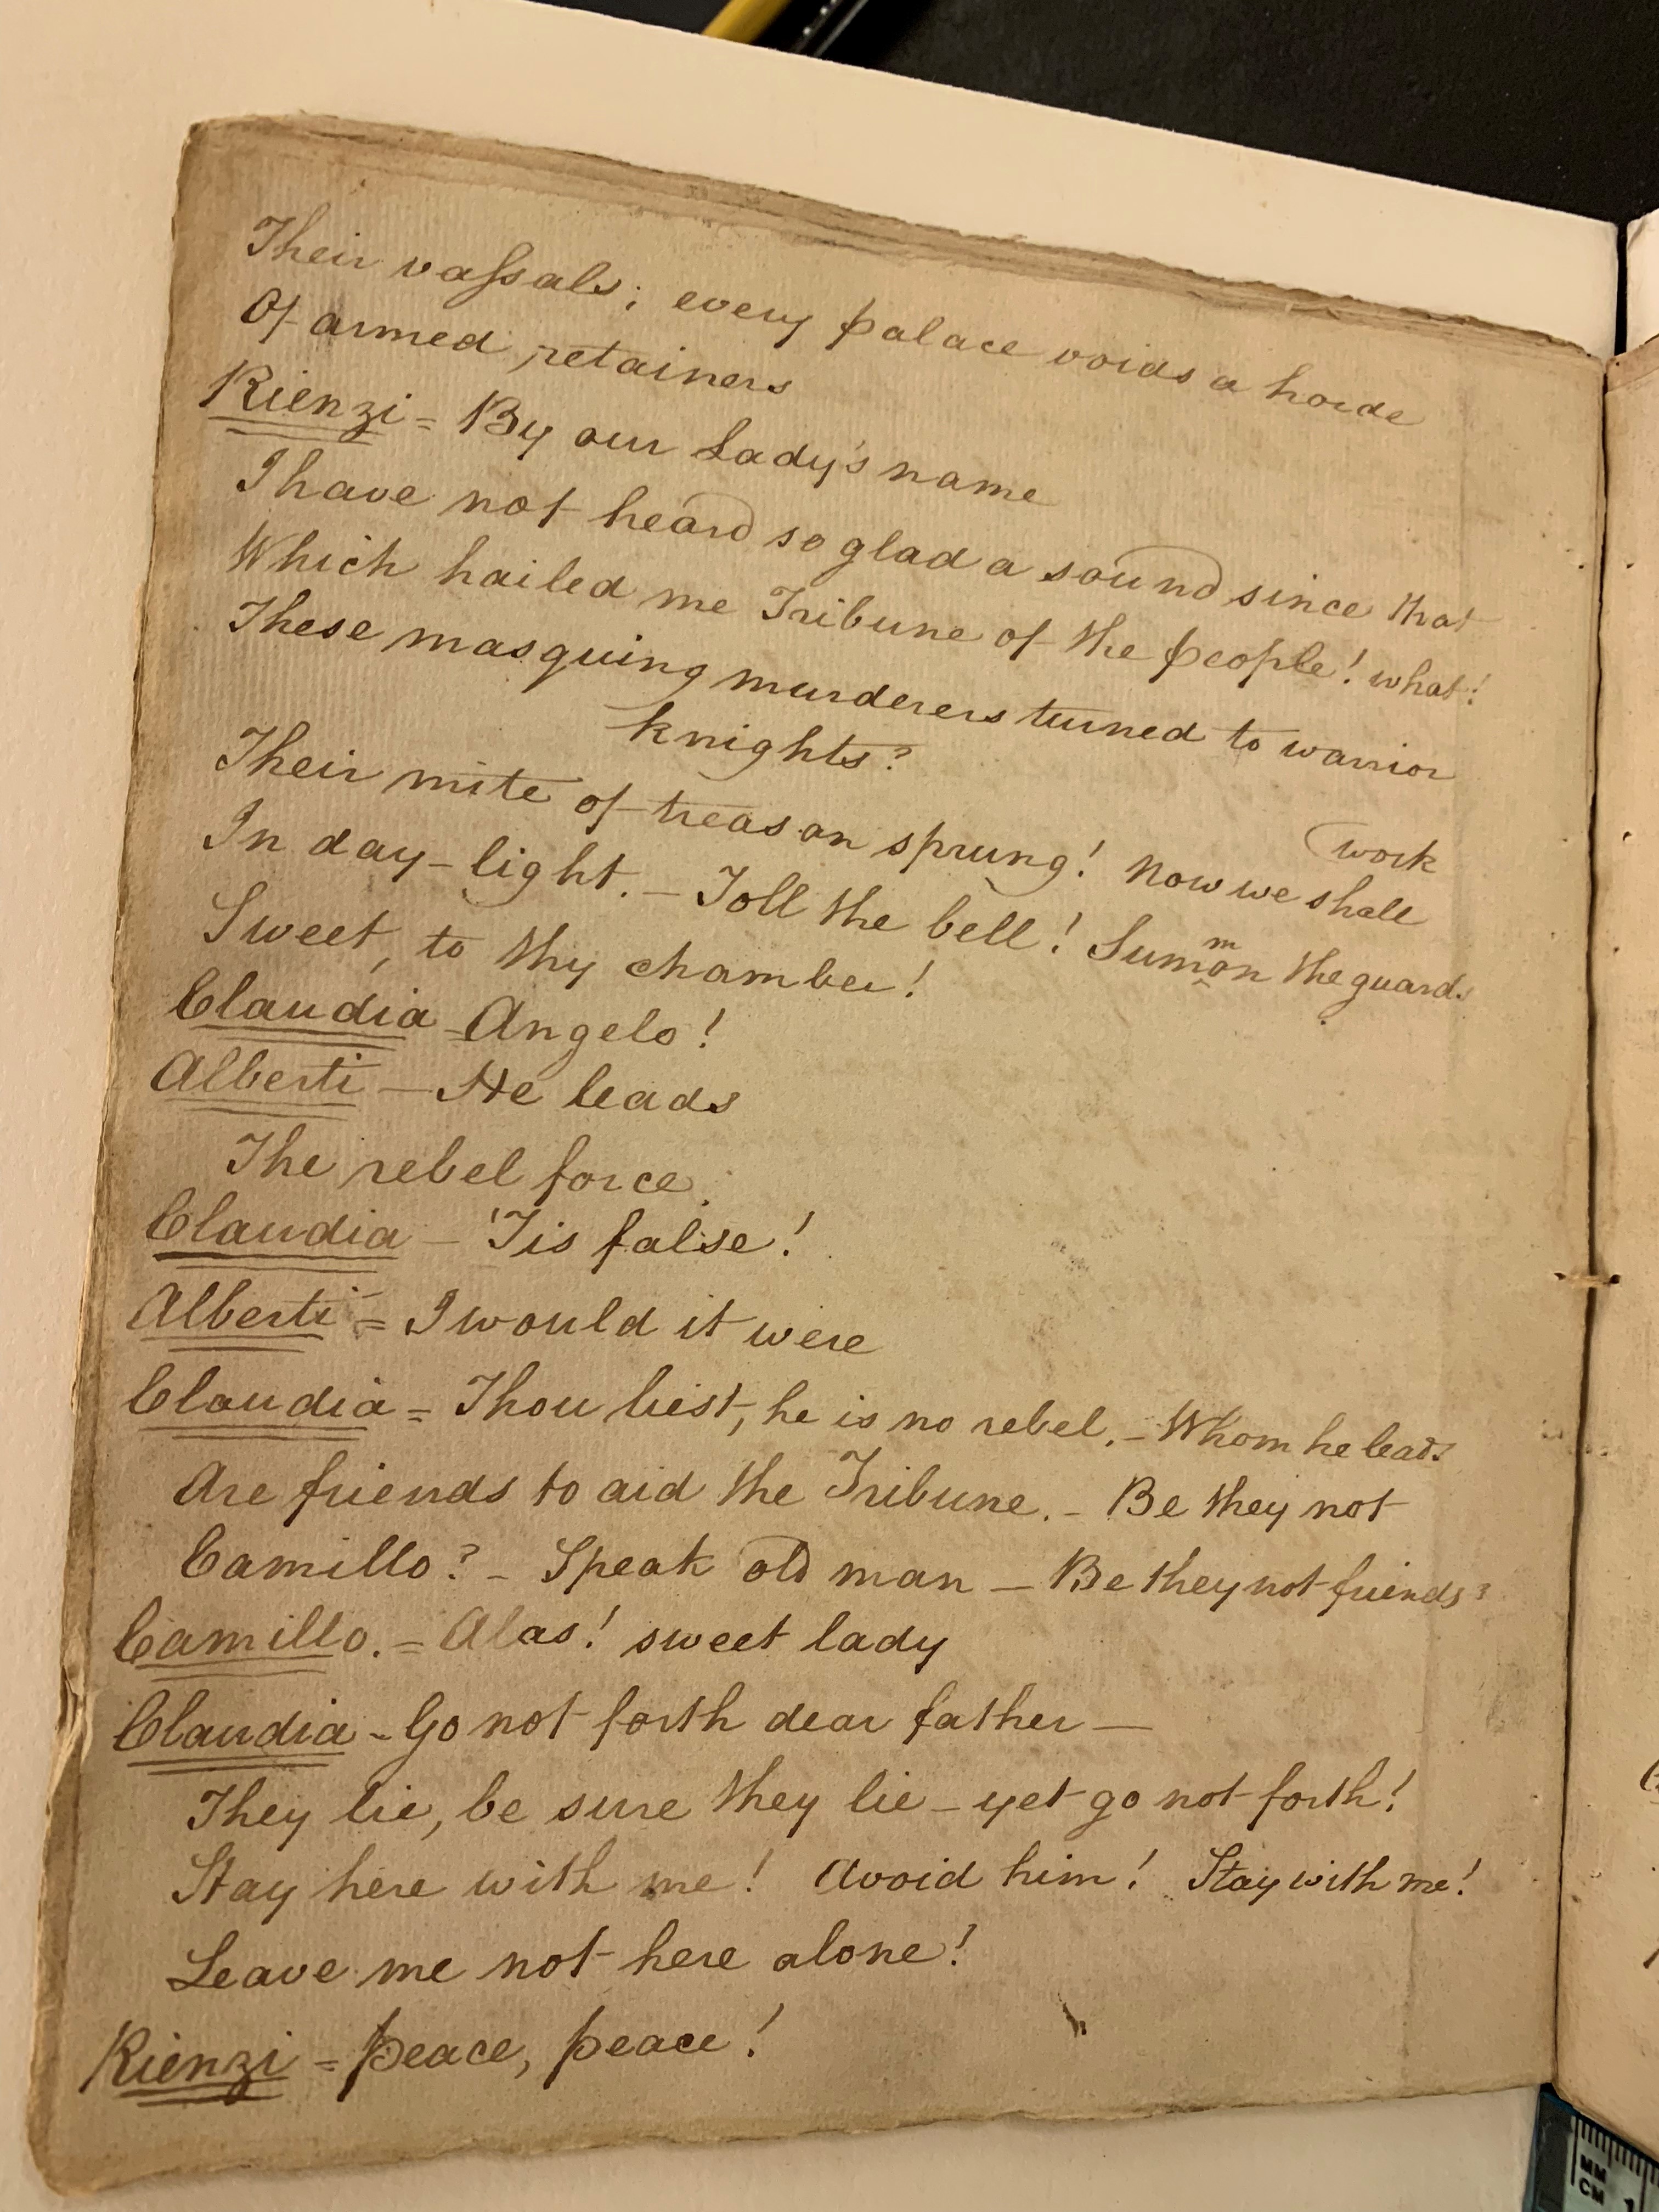 Their vaſsals; every palace voids a horde
Of armed retainers
Rienzi = By our Lady's name
I have not heard so glad a sound since that
Which hailed me Tribune of the people! what!
These masquing murderers turned to warrior
knights?
Their mite of treason sprung! Now we shall
(work
In day-light. - Toll the bell! Summon the guard.
Sweet, to thy chamber!
Claudia - Angelo!
Alberti - He leads
The rebel force.
Claudia - 'Tis false!
Alberti = I would it were
Claudia = Thou liest, he is no rebel. - Whom he leads
Are friends to aid the Tribune. - Be they not
Camillo? - Speak old man - Be they not friends?
Camillo. = Alas! sweet lady
Claudia - Go not forth dear father -
They lie, be sure they lie - yet go not forth!
Stay here with me! Avoid him! Stay with me!
Leave me not here alone!
Rienzi = peace, peace!
MM
CM 1